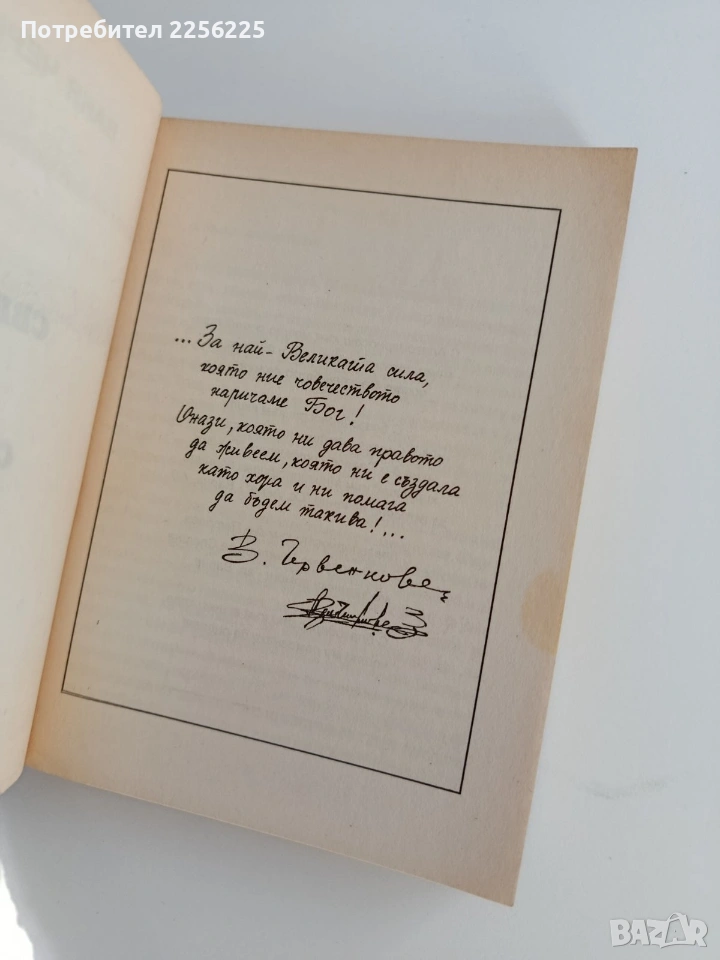 Потребител 2256225
...За най-Великата сила,
която ние човечеството
наричаме Бог!
Онази, която ни дава правото
да живеем, която ни е създала
като хора и ни помага
да бъдем такива!...
В. Червенковец
BAZAR